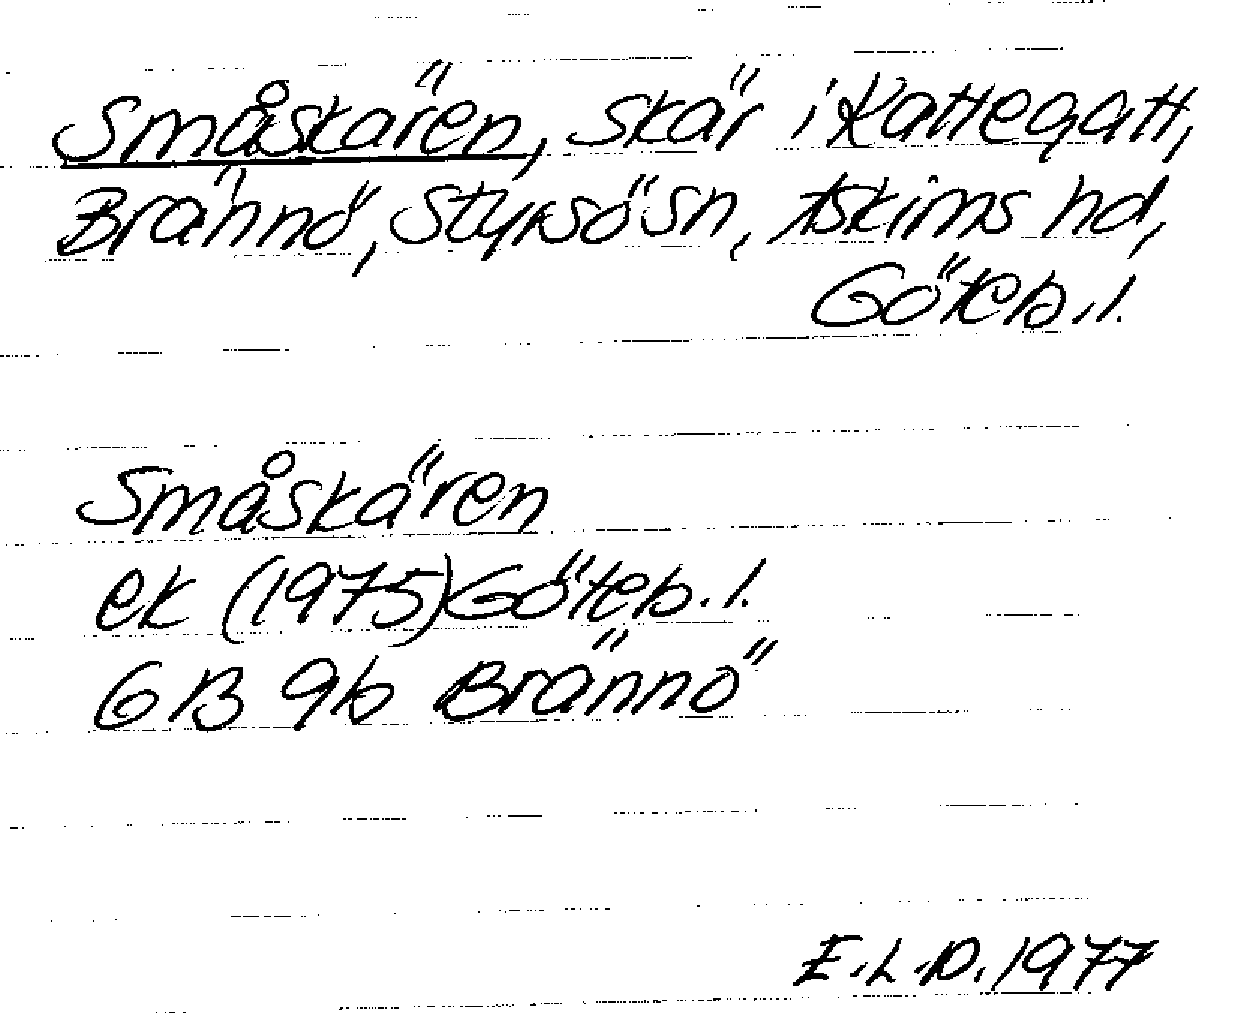 Småskären, skär i Kattegatt,
Brännö, Styrsö sn, Askims hd,
Göteb. l.
Småskären
ek (1975) Göteb. l.
6 B 9b Brännö
E.L.D. 1977